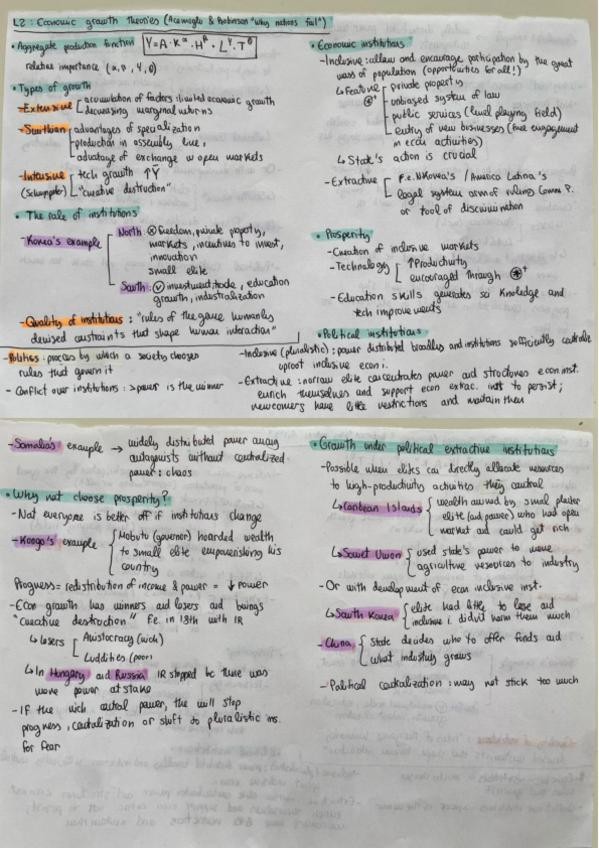 L2: Economic growth theories (Acemoglu & Robinson "Why nations fail")
• Aggregate production function Y=A·Kᵅ·Hᵝ·Lᵞ·Tᶿ
relative importance
• Types of growth
- Extensive accumulation of factors: limited economic growth
decreasing marginal returns
- Smithian advantages of specialization
production in assembly line,
advatage of exchange w open markets
- Intensive tech growth ↑Y
(Schumpeter) "creative destruction"
• The role of institutions
- Korea's example North: ⓧ freedom, private property,
markets, incentives to invest,
innovation
small elite
South: ⓥ investment, trade, education
growth, industralization
- Quality of institutions: "rules of the game humanly
devised constraints that shape human interaction"
- Politics: process by which a society chooses
rules that govern it
- Conflict over institutions: >power is the winner
• Economic institutions
- Inclusive: allow and encourage participation by the great
mass of population (opportunities for all!)
↳ Feature private property
⊛⁺ unbiased system of law
public services (level playing field)
entry of new businesses (free engagement
in econ activities)
↳ State's action is crucial
- Extractive f.e. N Korea's / America Latina's
legal system arm of ruling Comm P.
or tool of discrimination
• Prosperity
- Creation of inclusive markets
- Technology ↑Productivity
encouraged through ⊛⁺
- Education skills generates sci knowledge and
tech improvements
• Political institutions
- Inclusive (pluralistic): power distributed broadley and institutions sufficiently centralize
uproot inclusive econ i.
- Extractive: narrow elite concentrates power and structures econ inst.
enrich themselves and support econ extrac. inst to persist;
newcomers have little restrictions and maintain them
- Somalia's example → widely distributed power among
antagonists without centralized
power: chaos
• Why not choose prosperity?
- Not everyone is better off if institutions change
- Kongo's example Mobutu (governor) hoarded wealth
to small elite empoverishing his
country
Progress = redistribution of income & power = ↓power
- Econ growth has winners and losers and brings
"creative destruction" f.e. in 18th with IR
↳ losers Aristocracy (rich)
Luddities (poor)
↳ In Hungary and Russia IR stopped bc there was
more power at stake
- If the rich control power, the will stop
progress, centralization or shift to pluralistic ins.
for fear
• Growth under political extractive institutions
- Possible when elites can directly allocate resources
to high-productivity activities they control
↳ Caribean Islands wealth owned by small planter
elite (and power) who had open
market and could get rich
↳ Soviet Union used state's power to move
agriculture resources to industry
- Or with development of econ inclusive inst.
↳ South Korea elite had little to lose and
inclusive i. didn't harm them much
- China State decides who to offer funds and
what industry grows
- Political centralization: may not stick too much